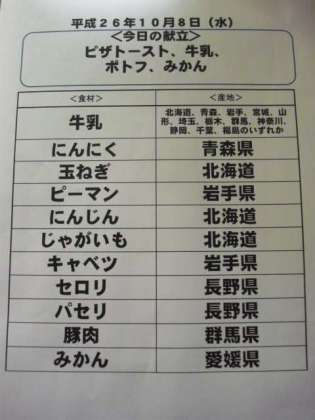 平成26年10月8日（水）
＜今日の献立＞
ピザトースト、牛乳、
ポトフ、みかん
＜食材＞ ＜産地＞
牛乳 北海道、青森、岩手、宮城、山
形、埼玉、栃木、群馬、神奈川、
静岡、千葉、福島のいずれか
にんにく 青森県
玉ねぎ 北海道
ピーマン 岩手県
にんじん 北海道
じゃがいも 北海道
キャベツ 岩手県
セロリ 長野県
パセリ 長野県
豚肉 群馬県
みかん 愛媛県